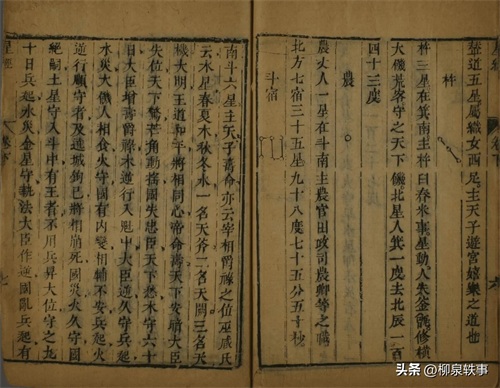 輦道五星屬織女西足主天子遊宮嬉樂之道也
杵
杵三星在箕南主杵臼舂米事星動人失釜甑修橫
大饑荒客守之天下饑北星入箕一度去北辰一百
四十三度
農
農丈人一星在斗南主農官田政司農卿等之職
北方七宿三十五星九十八度七十五分五十秒
斗宿
南斗六星主天子壽命亦云宰相爵祿之位巫咸氏
云木星春夏木秋冬水一名天斧二名天關三名天
機大明王道和平將相同心帝命壽天下安晴大臣
失位天下多芒角動搖國失忠臣天下愁木守六十
日大臣增壽爵將木逆行入魁中大臣逆久守兵起
水災大饑人相食火守國有內變相輔不安兵起火
逆行順守者及逆城鉤巳將相崩死國災火久守國
絕嗣土星守入斗中有王者不用兵昇大位守之九
十日兵起水災金星守執法大臣作逆國亂兵起有
星經
卷下
七
六
頭条 @柳泉轶事